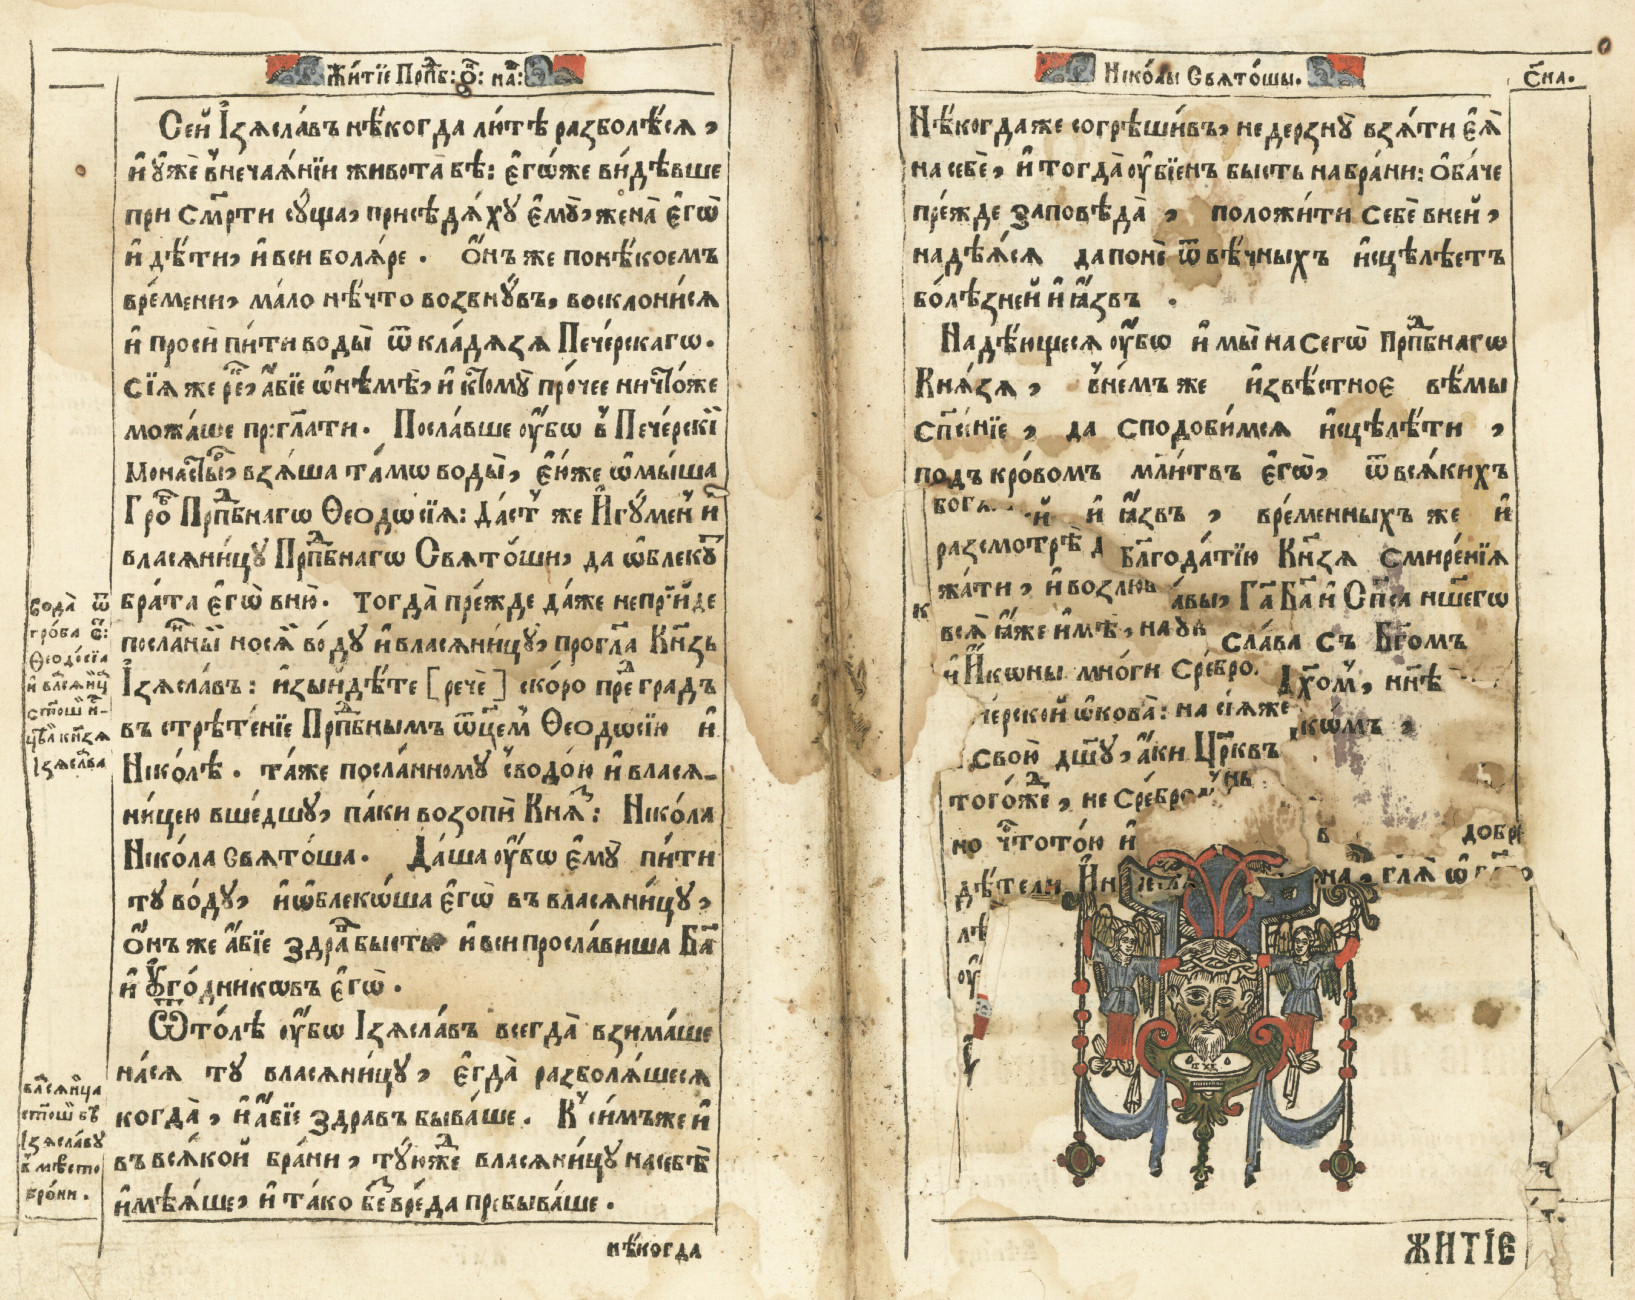 Житїе Прпⷣб: ѻ҃: на:
Сей І҆зѧсла́въ нѣ́когда лю́тѣ разболѣ́сѧ,
и҆ ᲂу҆жѐ в̾неча́ѧнїи живота̀ бѣ: є҆го́же ви́дѣвше
при См҃рти сꙋ́ща, присѣдѧ́хꙋ є҆мꙋ̀, жена̀ є҆гѡ̀
и҆ дѣ́ти, и҆ вси болѧ́ре. Ѻ҆́нъ же понѣ́коемъ
вре́мени, ма́ло нѣ́что возвнꙋ́въ, восклони́сѧ
и҆ просѝ пи́ти воды̀ ѿ кла́дѧзѧ Пече́рскагѡ.
сїѧ же ре́ч҇е, а҆́бїе ѡ҆нѣмѣ̀, и҆ ктомꙋ̀ про́чее ничто́же
можа́ше пргл҃ати. Посла́вше ᲂу҆́бѡ в̾ Пече́рскї
Монасты́р, взѧ́ша та́мѡ воды̀, є҆́юже ѡ҆мы́ша
Гро́б Прпⷣбнагѡ Ѳеодѡсїѧ: да́ст же И҆гꙋ́мен и҆
власѧни́цꙋ Прпⷣбнагѡ Свѧто́ши, да ѡ҆блекꙋ́т
бра́та є҆гѡ̀ в̾ню̀. Тогда̀ пре́жде да́же непрїи́де
посла́нный носѧ́й во́дꙋ и҆ власѧни́цꙋ, прогл҃а Кн҃зь
І҆зѧсла́въ: и҆зыидѣ́те [речѐ] ско́ро преⷣ градъ
въ стрѣте́нїе Прпⷣбнымъ ѻ҆ц҃ем Ѳеодѡсїю и҆
Нїко́лѣ. та́же посла́нномꙋ с̾водо́ю и҆ власѧ-
ни́цею вше́дшꙋ, па́ки возопѝ Кнѧ́з: Нїко́ла
Нїко́ла Свѧто́ша. Да́ша ᲂу҆́бѡ є҆мꙋ̀ пи́ти
тꙋ во́дꙋ, и҆ ѡ҆блеко́ша є҆гѡ̀ въ власѧни́цꙋ,
ѻ҆́нъ же а҆́бїе здра́в бысть и҆ вси просла́виша Бг҃а
и҆ ᲂу҆го́дникѡвъ є҆гѡ̀.
Ѿто́лѣ ᲂу҆́бѡ І҆зѧсла́въ всегда̀ взима́ше
на́сѧ тꙋ власѧни́цꙋ, є҆гда̀ разболѧ́шесѧ
когда̀, и҆ а҆́бїе здравъ быва́ше. К̾ си́мъ же и҆
въ всѧ́кой бра́ни, тꙋ́ юже власѧни́цꙋ на себѣ̀
и҆мѣ́ѧше, и҆ та́ко беⷥ вре́да пребыва́ше.
вода̀ ѿ
гро́ба с҃:
Ѳеодо́сїа
и҆ власѧни́ц
кн҃зѧ
І҆зѧсла́ва
власѧни́ца
І҆зѧсла́вꙋ
в̾ мѣ́сто
бро́ни.
нѣ́когда
Нїко́лы Свѧто́шы.
сн҃а.
Нѣ́когда же согрѣши́въ, не дерзнꙋ̀ взѧ́ти є҆ѧ̀
на себѐ, и҆ тогда̀ ᲂу҆бїенъ бысть на бра́ни: Ѻ҆ба́че
пре́жде заповѣ́да, положи́ти себѐ в̾ней,
надѣ́ѧсѧ да понѐ ѿ вѣ́чныхъ и҆сцѣлѣ́етъ
бо́лѣзней и҆ ꙗ҆́звъ.
Надѣ́ющесѧ ᲂу҆́бѡ и҆ мы̀ на Сегѡ̀ Прпⷣбнагѡ
Кнѧ́зѧ, в̾не́мъ же и҆звѣ́стное вѣ́мы
сп҃се́нїе, да сподоби́мсѧ и҆сцѣлѣ́ти,
подъ кро́вомъ мл҃и́твъ є҆гѡ̀, ѿ всѧ́кихъ
и҆ ꙗ҆́звъ, вре́менныхъ же и҆
разсмотрѣ́ бл҃года́тїю Кн҃зѧ смире́нїѧ
жа́ти, и҆ возлюб Гд҃а Бг҃а и҆ Сп҃са н҃шегѡ
всѧ̀ ꙗ҆́же и҆мѣ̀, сла́ва съ Бг҃омъ
и҆ И҆кѡны мно́ги Сребро Дх҃ом, нн҃ѣ
че́рской ѡ҆кова̀: на сїѧже
свою̀ дш҃ꙋ, а҆́ки Цр҃квъ
тогѡ́жⷣе, не Сребро́м
но ч̾тото́ю и҆ в добр
дѣ́тели гл҃ѧ ѡ҆
лѣ
ᲂу҆
ІС ХС
ЖИТЇЕ